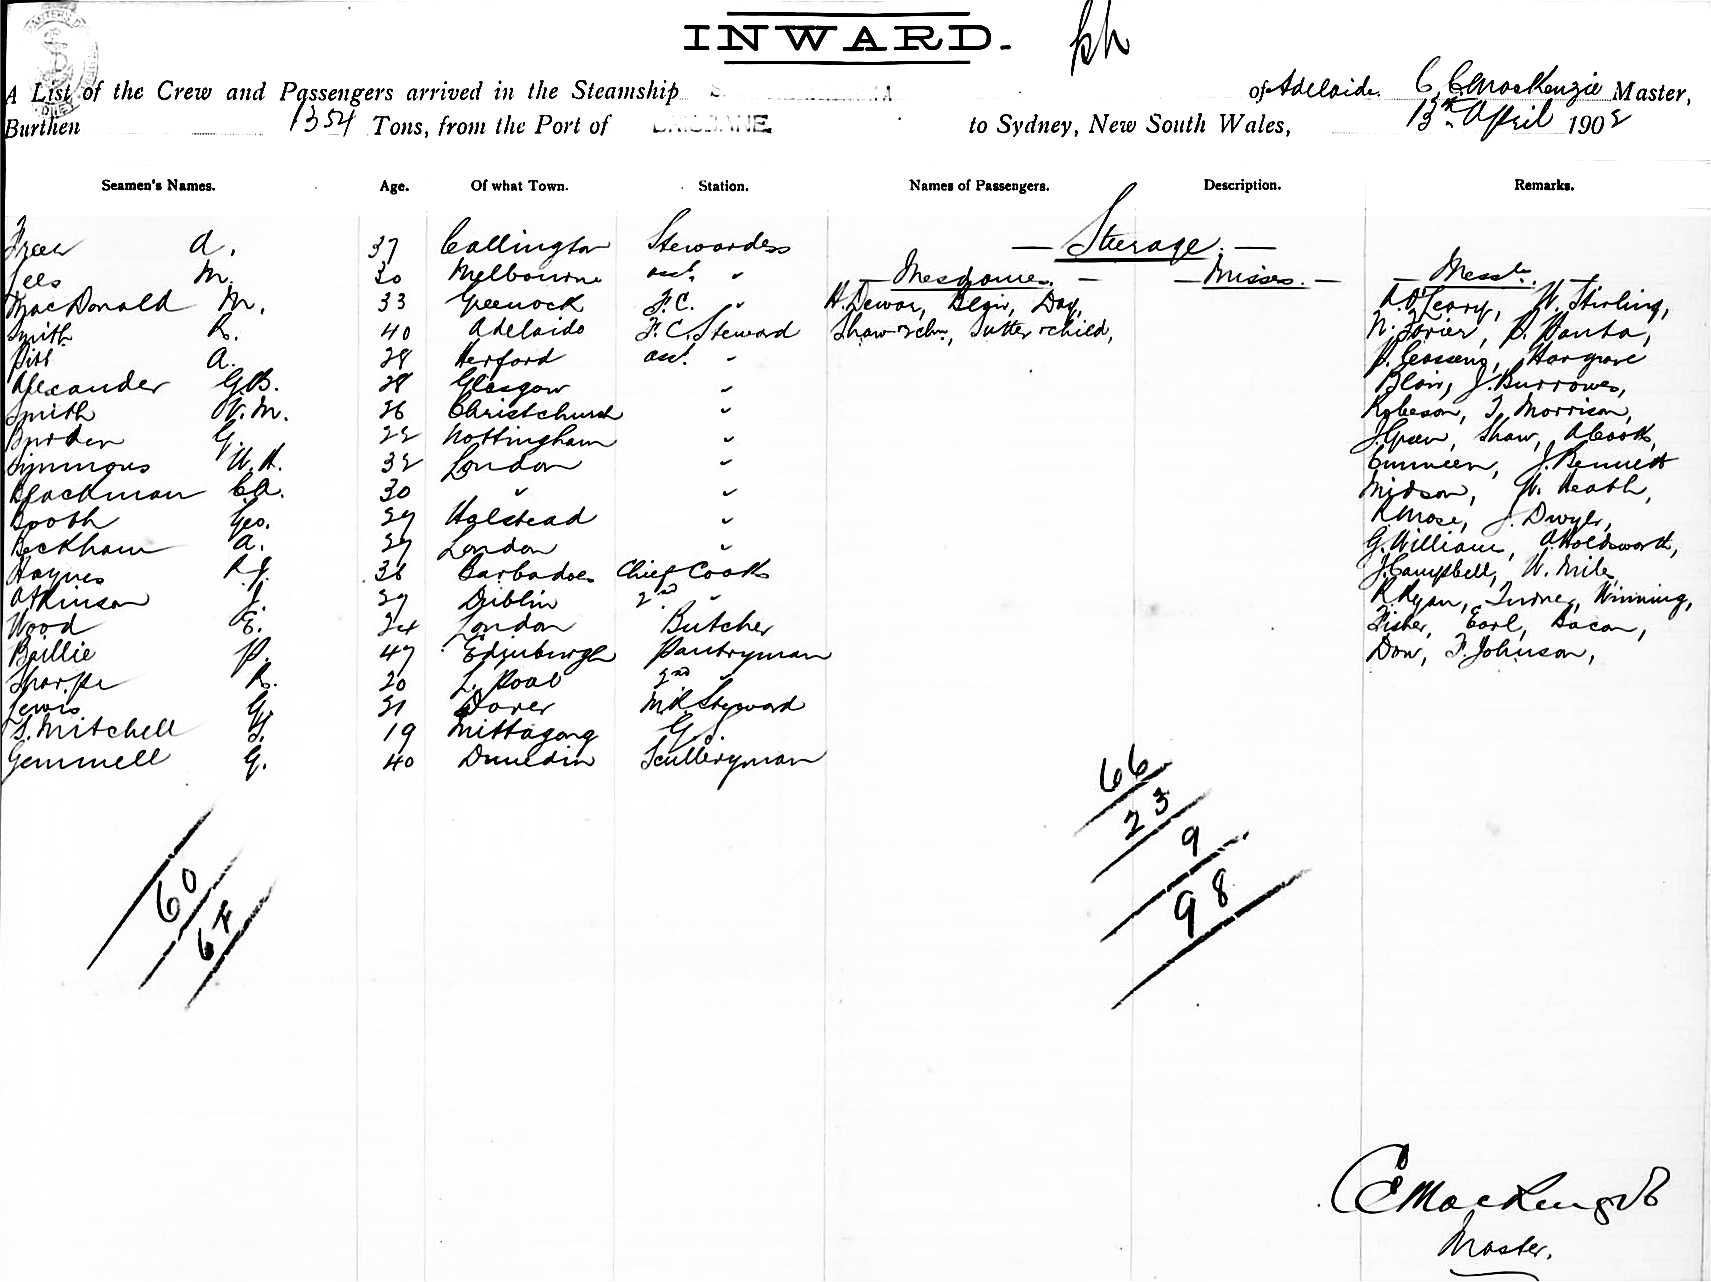 INWARD.
A List of the Crew and Passengers arrived in the Steamship of Adelaide. C. E. MacKenzie Master,
Burthen 1354 Tons, from the Port of BRISBANE to Sydney, New South Wales, 13th April 1902
Seamen's Names. Age. Of what Town. Station. Names of Passengers. Description. Remarks.
A. 37 Callington Stewardess — Steerage. —
M. 30 Melbourne asst. " — Mesdames. — — Misses. — — Messrs. —
MacDonald M. 33 Greenock F.C. " H. Dewar, Blair, Day, A. O'Leary, W. Stirling,
Smith R. 40 Adelaide F.C. Steward Shaw & chn., Sutter & child,
Pitt A. 28 Herford asst. " Hargrave
Alexander G.B. 28 Glasgow " Blair, J. Burrowes,
Smith W.M. 26 Christchurch " Robeson, T. Morrison,
Burden G. 22 Nottingham " J. Green, Shaw, A Cook,
Simmons W.H. 32 London " J. Bennett
Blackman C.A. 30 " " Midson, W. Heath,
Booth Geo. 29 Halstead " R Mose, J. Dwyer,
Beckham A. 29 London " G. William, A Holdsworth,
Haynes R.J. 36 Barbadoes Chief Cook J. Campbell, W. Mile,
Atkinson J. 29 Dublin 2nd " R Ryan, Turner, Winning,
Wood E. 24 London Butcher Fisher, Earl, Bacon,
Baillie P. 47 Edinburgh Pantryman Dow, F. Johnson,
Sharpe R. 20 L. Pool 2nd "
Lewis G. 21 Dover M.R. Steward
S. Mitchell G. 19 Mittagong G.S.
Gemmell G. 40 Dunedin Sculleryman
66
23
9
98
60
67
C E MacKenzie
Master.